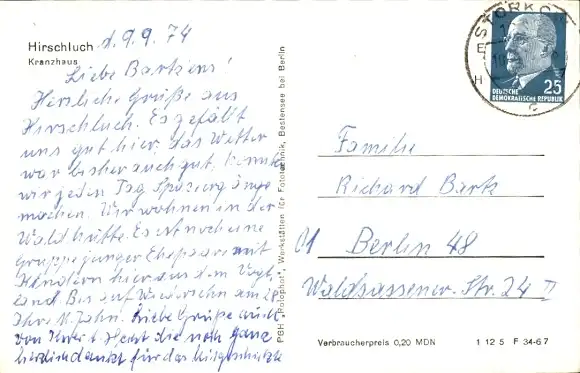 Hirschluch d. 9.9.74
Kranzhaus
Liebe Bartzens!
Herzliche Grüße aus
Hirschluch. Es gefällt
uns gut hier. das Wetter
war bisher auch gut. Konnten
wir jeden Tag Spaziergänge
machen. Wir wohnen in der
Waldhütte. Es ist noch eine
Gruppe junger Ehepaare mit
Kindern hier aus dem Vogt-
land Bis auf Wiedersehn am 28
Ihre K. Jahn. Liebe Grüße auch
von Hecht die noch ganz
herzlich dankt für das
PGH „Rotophot“, Werkstätten für Fototechnik, Bestensee bei Berlin
STORKOW
DEUTSCHE
DEMOKRATISCHE REPUBLIK
25
Familie
Richard Bartz
Berlin 48
Waldsassener-Str. 24 II
Verbraucherpreis 0,20 MDN 1 12 5 F 34-67